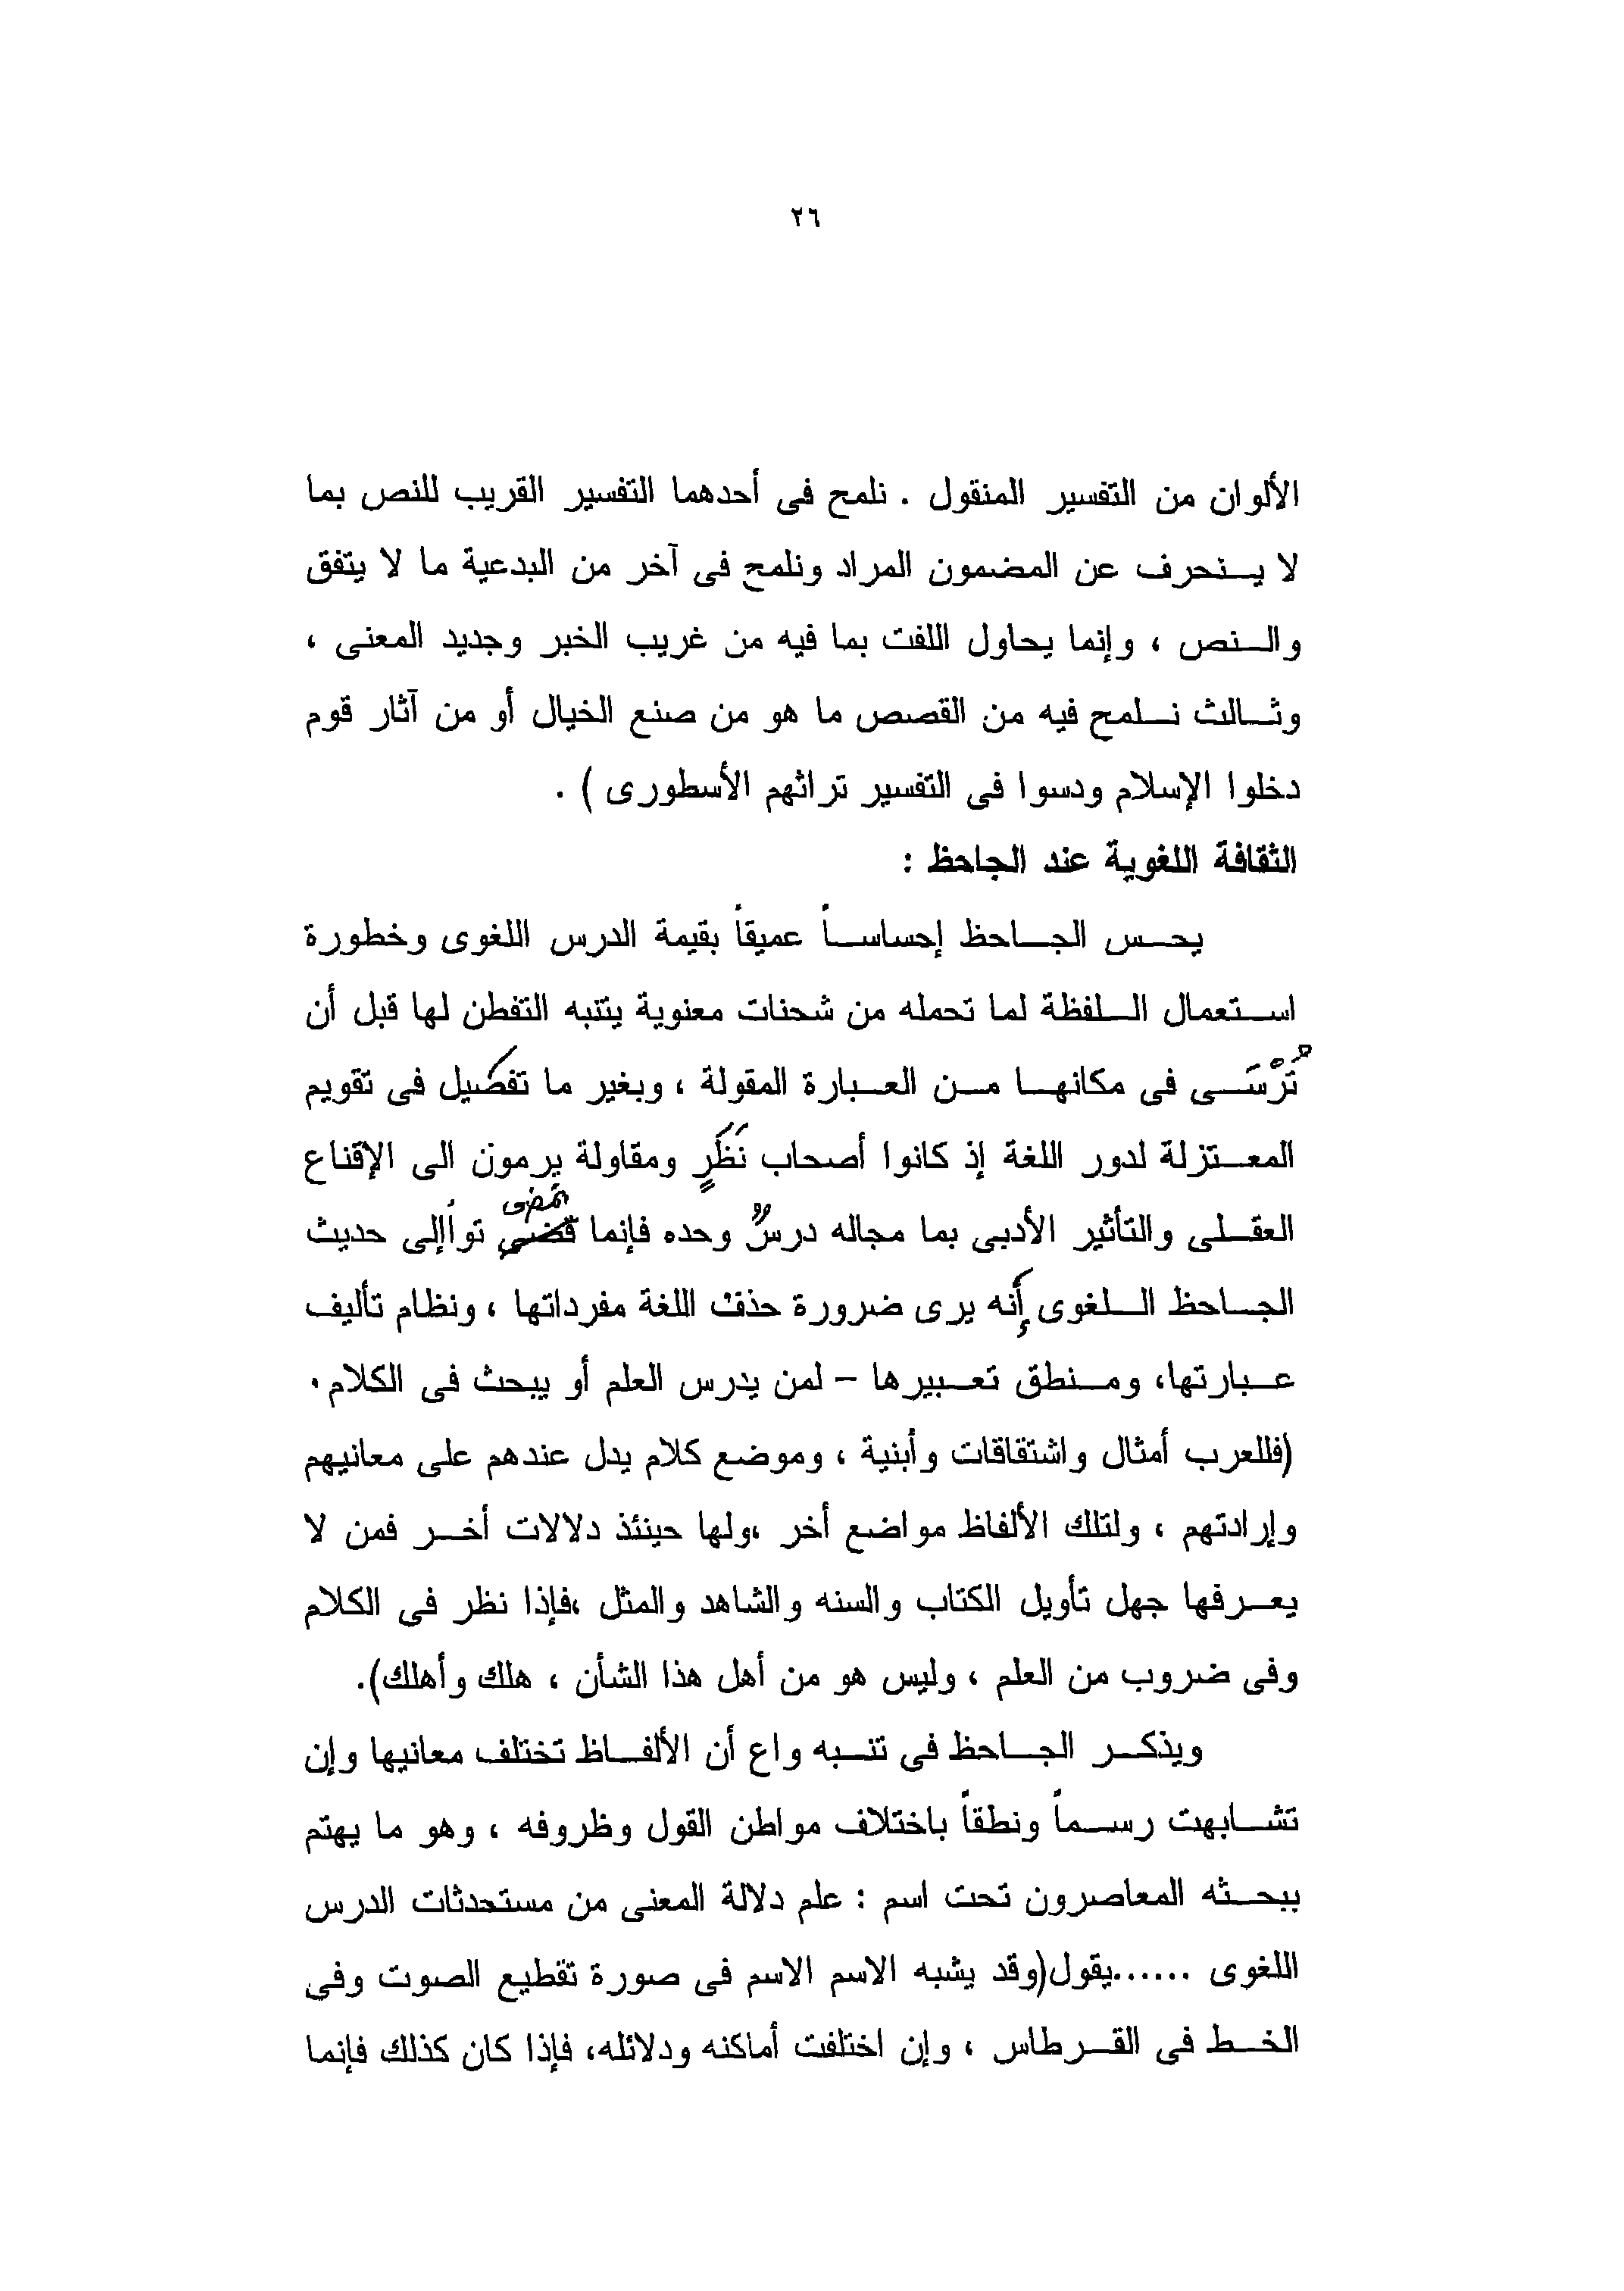 ٢٦
الألوان من التفسير المنقول . نلمح فى أحدهما التفسير القريب للنص بما
لا ينحرف عن المضمون المراد ونلمح فى آخر من البدعية ما لا يتفق
والنص ، وإنما يحاول اللفت بما فيه من غريب الخبر وجديد المعنى ،
وثالث نلمح فيه من القصص ما هو من صنع الخيال أو من آثار قوم
دخلوا الإسلام ودسوا فى التفسير تراثهم الأسطورى ) .
الثقافة اللغوية عند الجاحظ :
يحس الجاحظ إحساساً عميقاً بقيمة الدرس اللغوى وخطورة
استعمال اللفظة لما تحمله من شحنات معنوية يتنبه التفطن لها قبل أن
تُرْسَى فى مكانها من العبارة المقولة ، وبغير ما تفصيل فى تقويم
المعتزلة لدور اللغة إذ كانوا أصحاب نَظَرٍ ومقاولة يرمون الى الإقناع
العقلى والتأثير الأدبى بما مجاله درسٌ وحده فإنما نمضى تواً إلى حديث
الجاحظ اللغوى إنه يرى ضرورة حذق اللغة مفرداتها ، ونظام تأليف
عبارتها، ومنطق تعبيرها – لمن يدرس العلم أو يبحث فى الكلام .
(فللعرب أمثال واشتقاقات وأبنية ، وموضع كلام يدل عندهم على معانيهم
وإرادتهم ، ولتلك الألفاظ مواضع أخر ،ولها حينئذ دلالات أخر فمن لا
يعرفها جهل تأويل الكتاب والسنه والشاهد والمثل ،فإذا نظر فى الكلام
وفى ضروب من العلم ، وليس هو من أهل هذا الشأن ، هلك وأهلك).
ويذكر الجاحظ فى تنبه واع أن الألفاظ تختلف معانيها وإن
تشابهت رسماً ونطقاً باختلاف مواطن القول وظروفه ، وهو ما يهتم
ببحثه المعاصرون تحت اسم : علم دلالة المعنى من مستحدثات الدرس
اللغوى ......يقول(وقد يشبه الاسم الاسم فى صورة تقطيع الصوت وفى
الخط فى القرطاس ، وإن اختلفت أماكنه ودلائله، فإذا كان كذلك فإنما